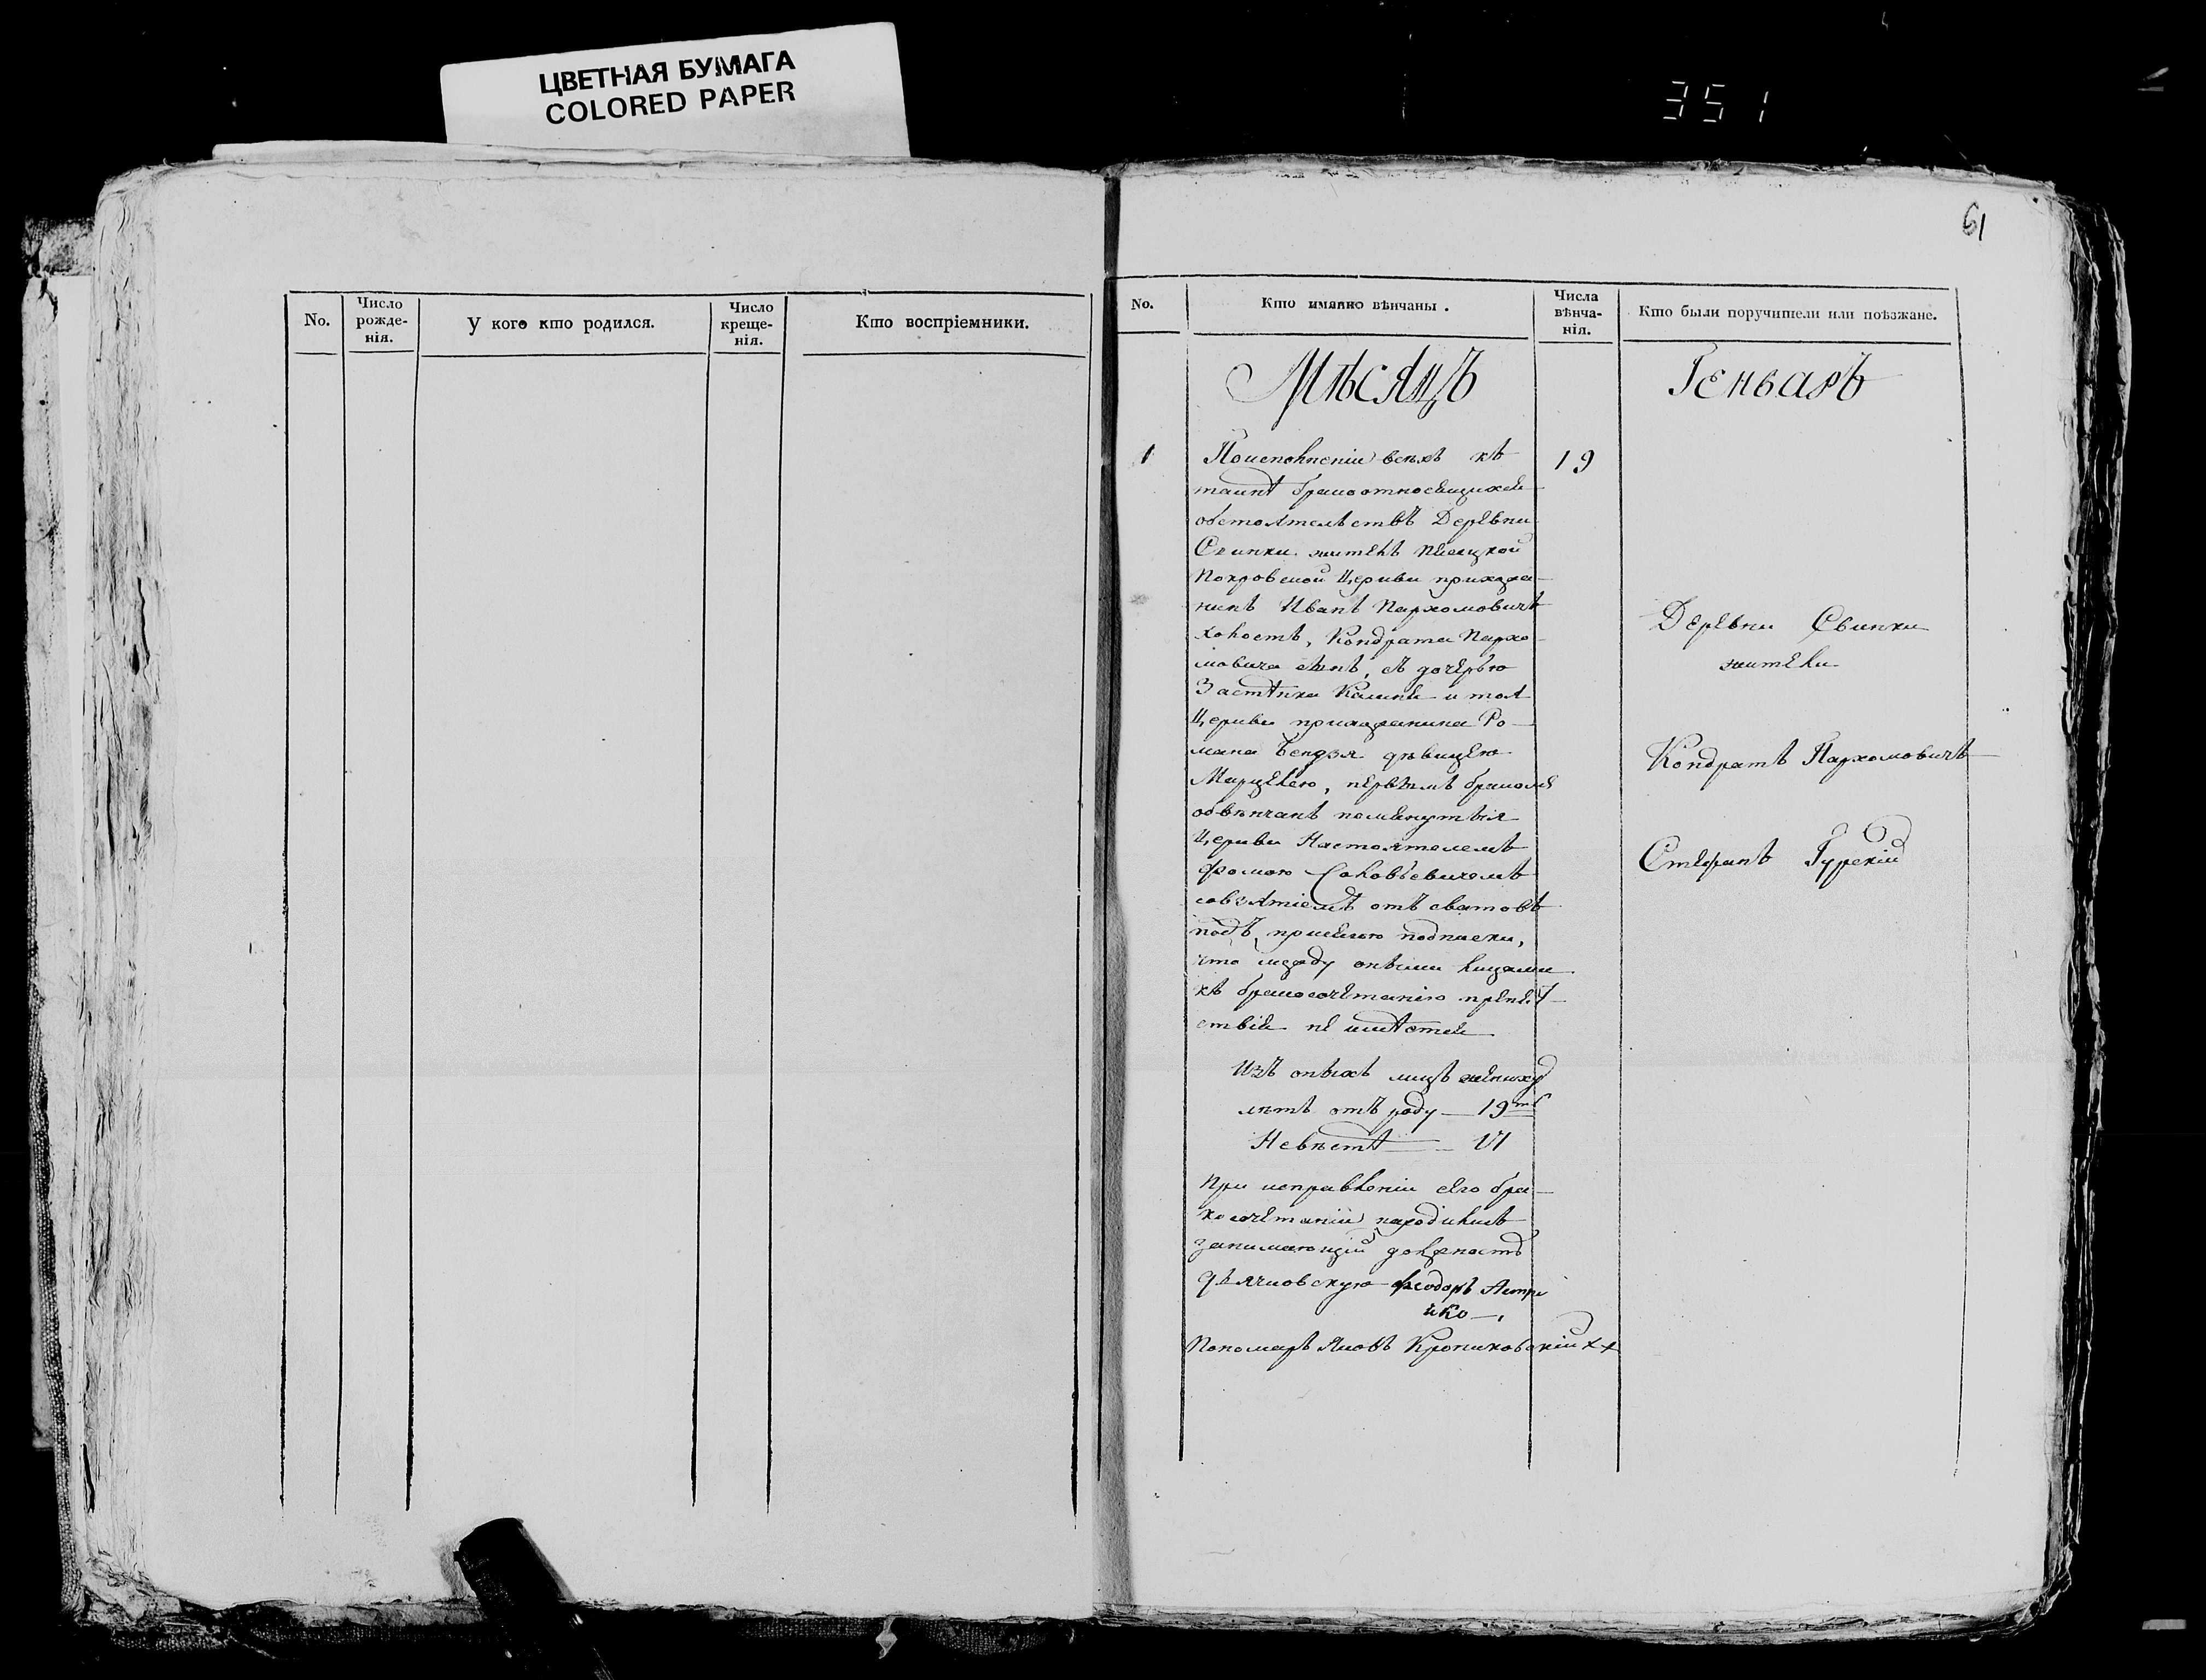 ЦВЕТНАЯ БУМАГА
COLORED PAPER
351
61
No.
Число рожде- нія.
У кого кто родился.
Число креще- нія.
Кто воспріемники.
No.
Кто имянно вѣнчаны .
Числа вѣнча- нія.
Кто были поручители или поѣзжане.
Мѣсяцъ
Генварь
1
19
Поисполненіи всѣхъ къ
таинѣ бракоотносящихся
обстоятельствъ Деревни
Свинки житель
Покровской Церкви прихожа-
нинъ Иванъ Пархомовичъ
холостъ, Кондрата Пархо-
мовича сынъ, съ дочерью
Застѣнка и тоя
Церкви прихожанина Ро-
мана дѣвицею
Марцелею, первымъ бракомъ
обвѣнчанъ помянутыя
Церкви Настоятелемъ
Фомою Соловьевичемъ
совзятіемъ отъ сватовъ
подъ присягою подписки,
что между оными лицами
къ бракосочетанію препят-
ствія не имѣется
Изъ оныхъ лицъ жениху
лѣтъ отъ роду — 19ть
Невѣстѣ —
При исправленіи сего бра-
косочетанія находились
занимающій должность
дьячковскую Феодоръ
ико —,
Пономарь Яковъ ++
Деревни Свинки
жители
Кондратъ Пархомовичъ
Стефанъ Гурскій